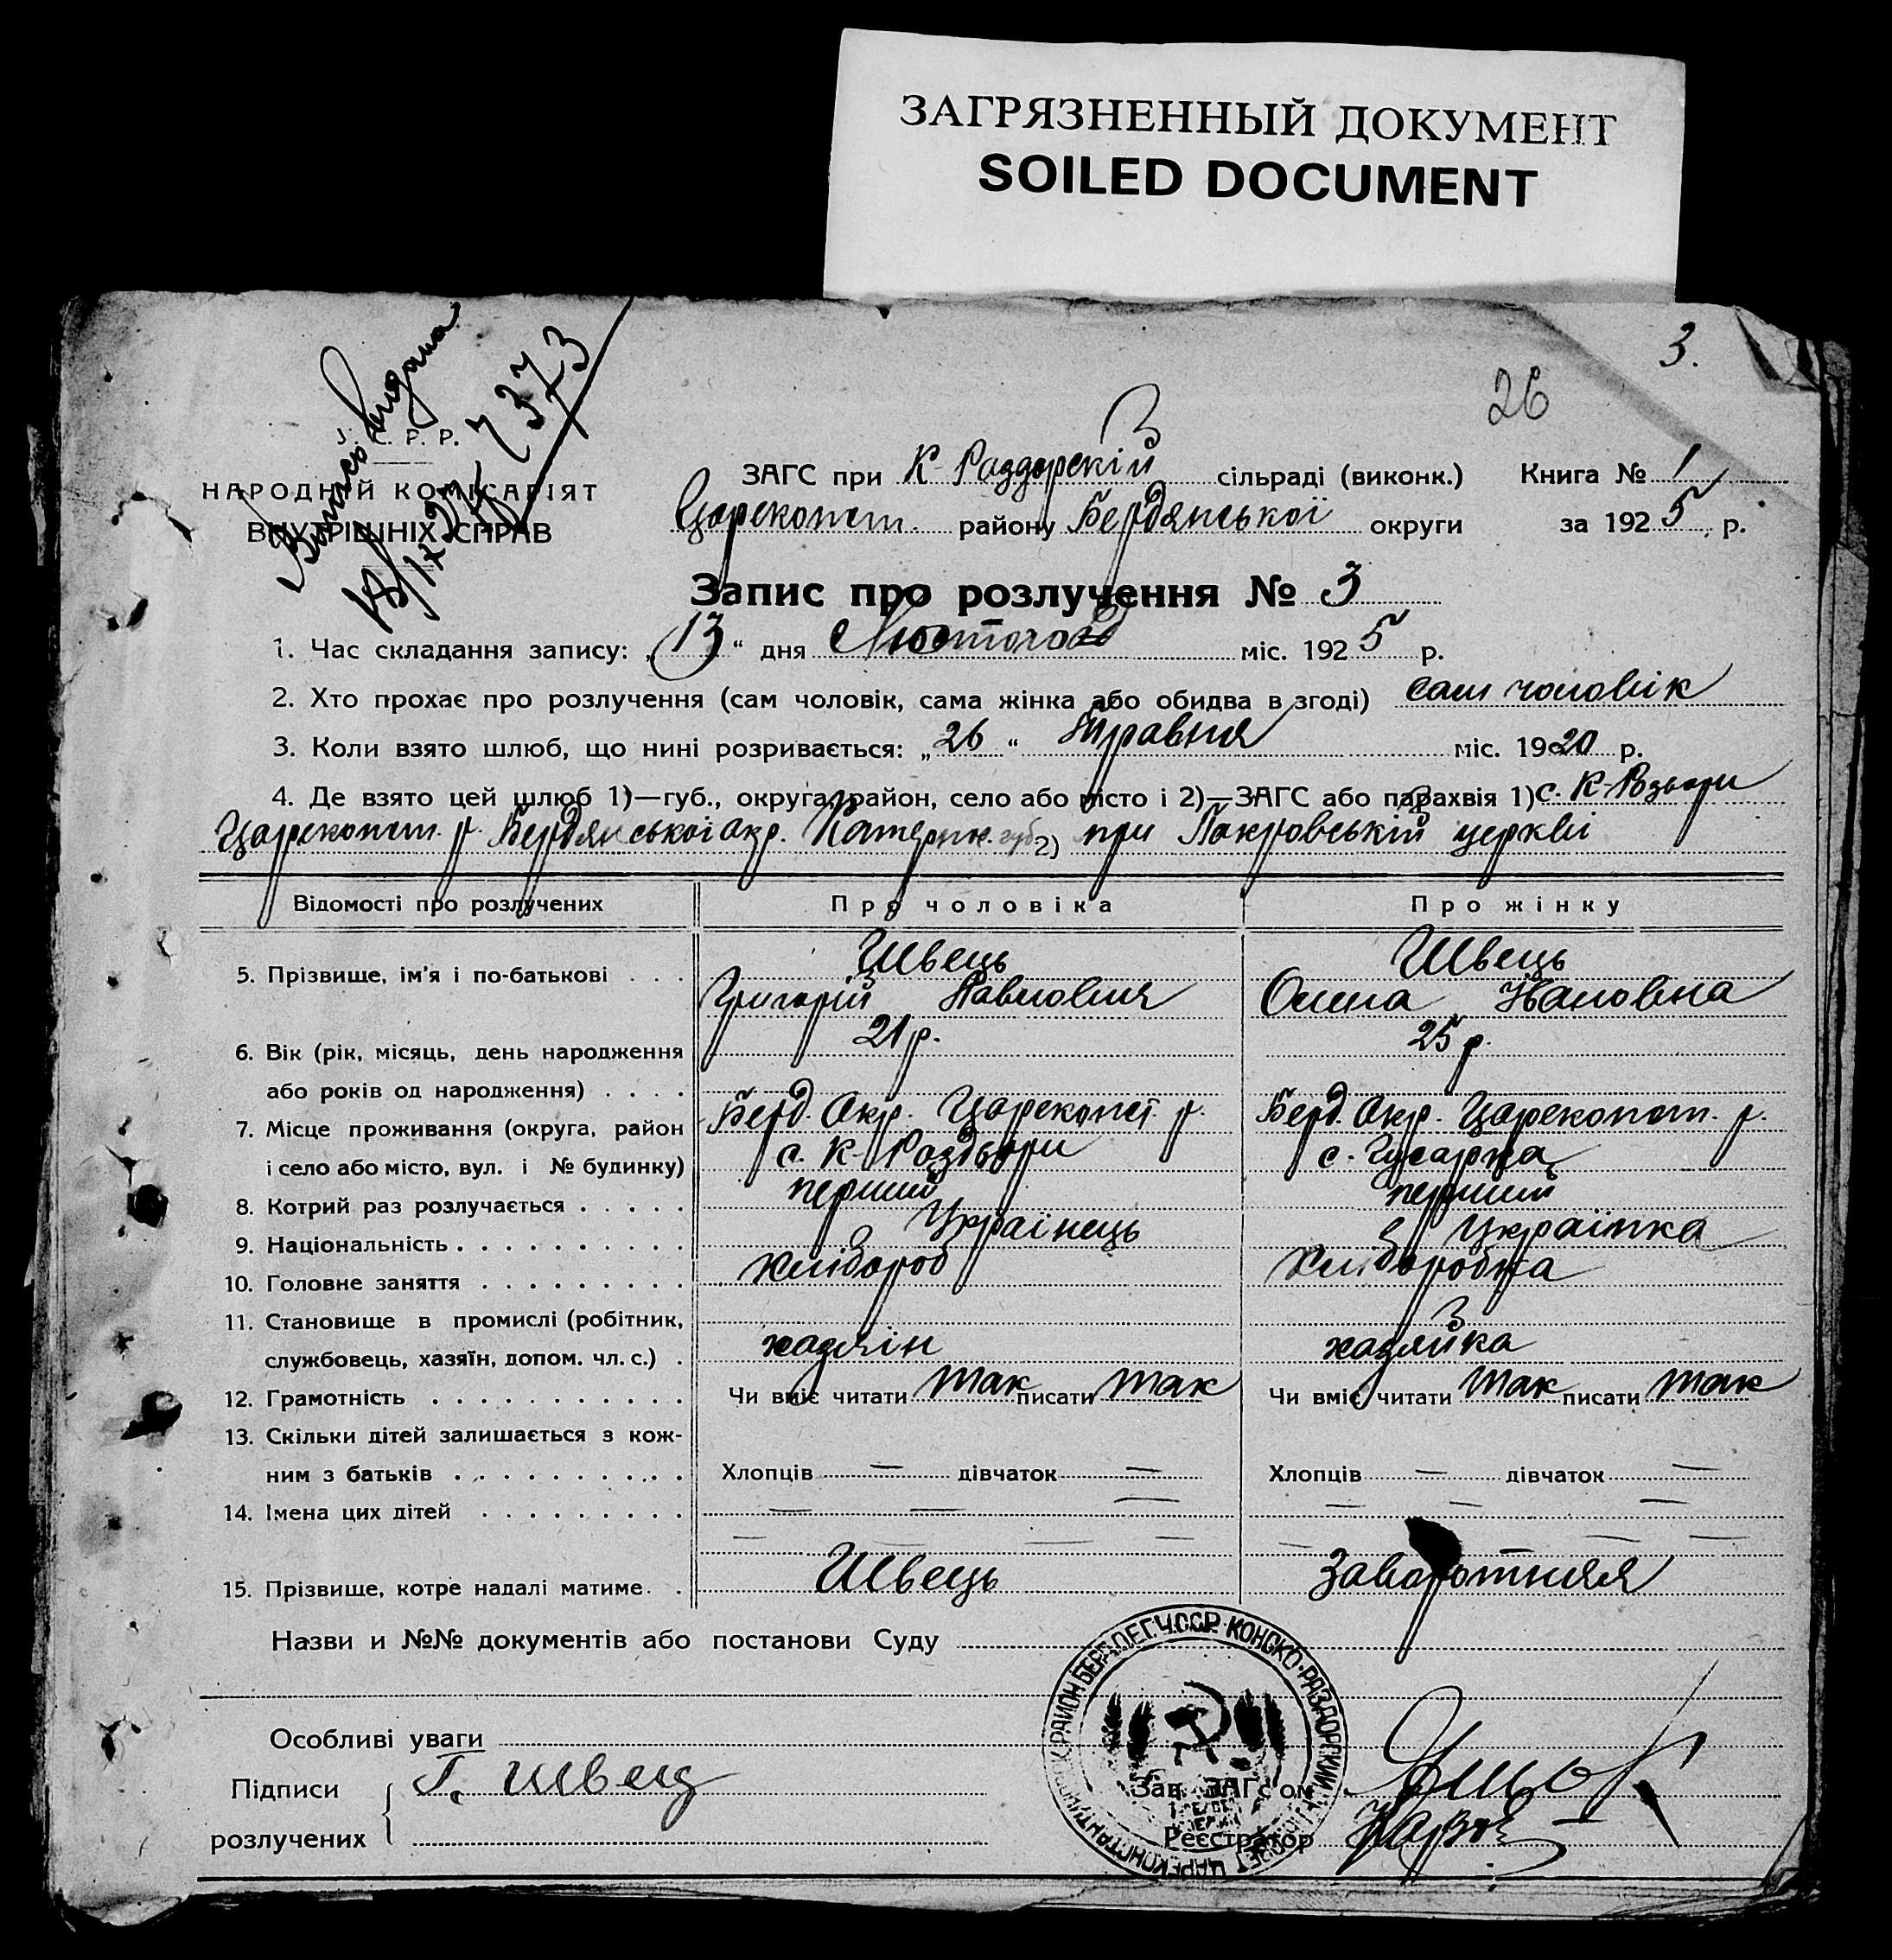 ЗАГРЯЗНЕННЫЙ ДОКУМЕНТ
SOILED DOCUMENT
3.
26
Выпись выдана
У. С. Р. Р.
НАРОДНІЙ КОМІСАРІЯТ
ВНУТРІШНІХ СПРАВ
ЗАГС при К-Раздорскій сільраді (виконк.) Книга № 1
Царекопст. району Бердянської округи за 1925 р.
Запис про розлучення № 3
1. Час складання запису: „13“ дня Лютого міс. 1925 р.
2. Хто прохає про розлучення (сам чоловік, сама жінка або обидва в згоді) сам чоловік
3. Коли взято шлюб, що нині розривається: „26“ Травня міс. 1920 р.
4. Де взято цей шлюб 1)—губ., округа, район, село або місто і 2)—ЗАГС або парахвія 1) с. К-Рздори
Царекопст. р. Бердянської окр. Катерин. губ 2) при Покровській церкві
Відомості про розлучених Про чоловіка Про жінку
5. Прізвище, ім'я і по-батькові . . . Швець Швець
Григорій Павлович Олина Івановна
6. Вік (рік, місяць, день народження 21 р. 25 р.
або років од народження) . . . .
7. Місце проживання (округа, район Берд. Окр. Царекопст. р. Берд. Окр. Царекопст. р.
і село або місто, вул. і № будинку) с. К-Роздори с. Гусарка
8. Котрий раз розлучається . . . . . перший перший
9. Національність . . . . . . . . . . Українець Українка
10. Головне заняття . . . . . . . . . Хлібороб Хлиборобка
11. Становище в промислі (робітник,
службовець, хазяїн, допом. чл. с.) . хазяін хазяйка
12. Грамотність . . . . . . . . . . . Чи вміє читати так писати так Чи вміє читати так писати так
13. Скільки дітей залишається з кож-
ним з батьків . . . . . . . . . . Хлопців — дівчаток — Хлопців — дівчаток —
14. Імена цих дітей . . . . . . . . . — — — — — —
— — — — — —
15. Прізвище, котре надалі матиме . . Швець Заворотняя
Назви и №№ документів або постанови Суду
Особливі уваги
Підписи Г. Швец Зав. ЗАГс'ом
розлучених Реєстратор
РАЙОН БЕРД. У.С.С.Р. КОНСКО-РАЗДОРСКИЙ